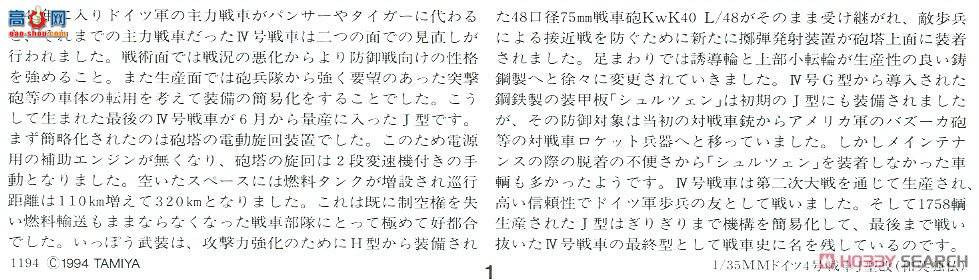 に入りドイツ軍の主力戦車がパンサーやタイガーに代わる
れまでの主力戦車だったⅣ号戦車は二つの面での見直しが
行われました。戦術面では戦況の悪化からより防御戦向けの性格
を強めること。また生産面では砲兵隊から強く要望のあった突撃
砲等の車体の転用を考えて装備の簡易化をすることでした。こう
して生まれた最後のⅣ号戦車が6月から量産に入ったJ型です。
まず簡略化されたのは砲塔の電動旋回装置でした。このため電源
用の補助エンジンが無くなり、砲塔の旋回は2段変速機付きの手
動となりました。空いたスペースには燃料タンクが増設され巡行
距離は110km増えて320kmとなりました。これは既に制空権を失
い燃料輸送もままならなくなった戦車部隊にとって極めて好都合
でした。いっぽう武装は、攻撃力強化のためにH型から装備され
1194 ©1994 TAMIYA
た48口径75mm戦車砲KwK40 L/48がそのまま受け継がれ、敵歩兵
による接近戦を防ぐために新たに擲弾発射装置が砲塔上面に装着
されました。足まわりでは誘導輪と上部小転輪が生産性の良い鋳
鋼製へと徐々に変更されていきました。Ⅳ号G型から導入された
鋼鉄製の装甲板「シュルツェン」は初期のJ型にも装備されました
が、その防御対象は当初の対戦車銃からアメリカ軍のバズーカ砲
等の対戦車ロケット兵器へと移っていました。しかしメインテナ
ンスの際の脱着の不便さから「シュルツェン」を装着しなかった車
輌も多かったようです。Ⅳ号戦車は第二次大戦を通じて生産され、
高い信頼性でドイツ軍歩兵の友として戦いました。そして1758輌
生産されたJ型はぎりぎりまで機構を簡易化して、最後まで戦い
抜いたⅣ号戦車の最終型として戦車史に名を残しているのです。
1
1/35MMドイツ4号戦車J型
HOBBY SEARCH